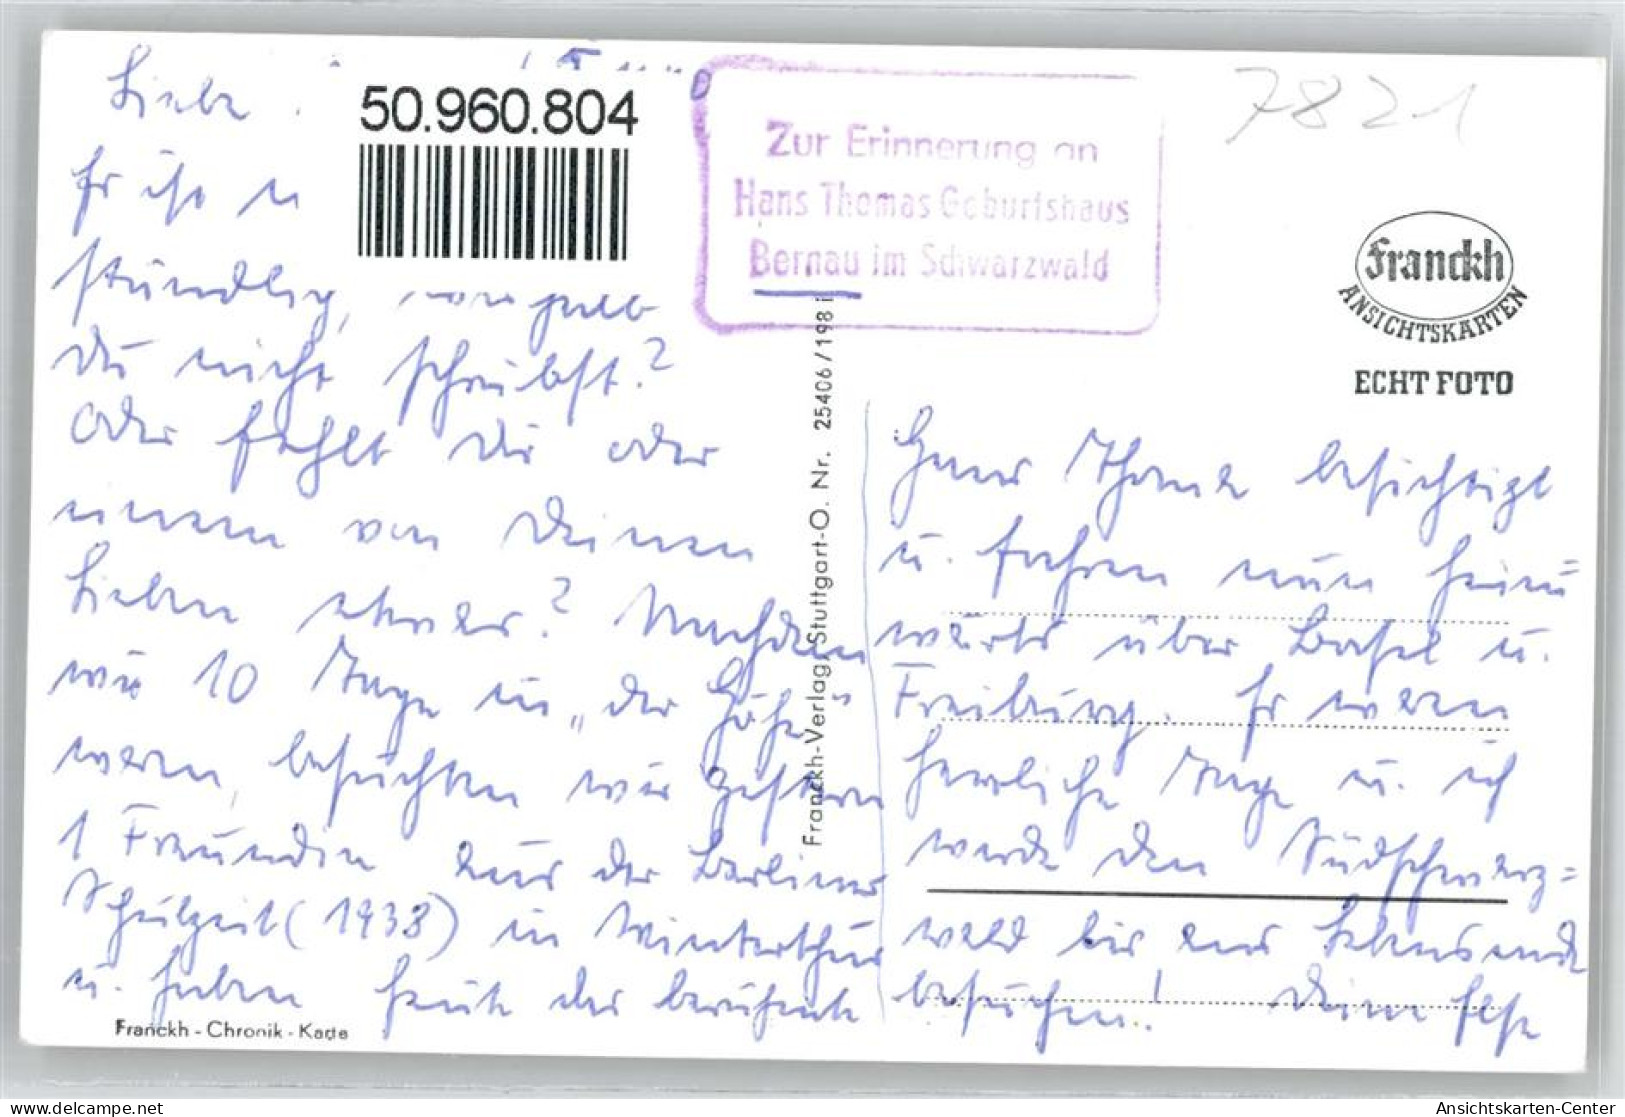 Liebe
50.960.804
Er ist
stündlich,
Du nicht schreibst?
Oder fehlt Dir oder
einem von Deinen
Lieben etwas? Nachdem
wir 10 Tage in „der Höhe"
waren, besuchten wir gestern
1 Freundin aus der Berliner
Schulzeit (1933) in Winterthur
u. haben heute das berühmte
Franckh - Chronik - Karte
Zur Erinnerung an
Hans Thomas Geburtshaus
Bernau im Schwarzwald
Franckh-Verlag Stuttgart-O. Nr. 25406/198 i
7821
Franckh
ANSICHTSKARTEN
ECHT FOTO
Haus Thoma besichtigt
u. fahren nun heim=
wärts über Basel u.
Freiburg. Es waren
herrliche Tage u. ich
werde den Südschwarz=
wald bis ans Lebensende
besuchen! Deine
Ansichtskarten-Center
delcampe.net